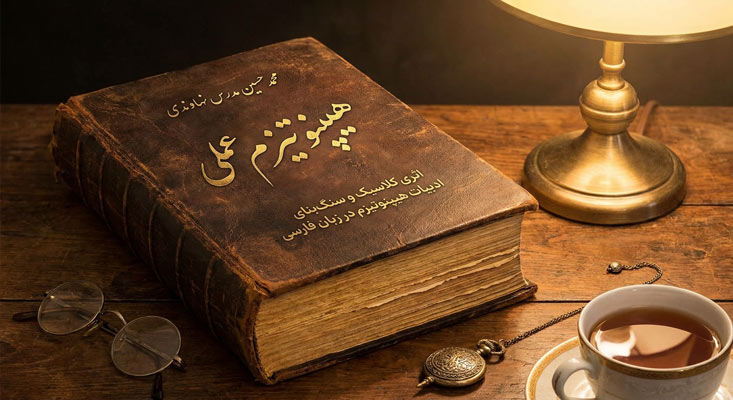 محمد حسین مدرس نهاوندی
هیپنوتیزم عملی
اثری کلاسیک و سنگ‌بنای
ادبیات هیپنوتیزم در زبان فارسی